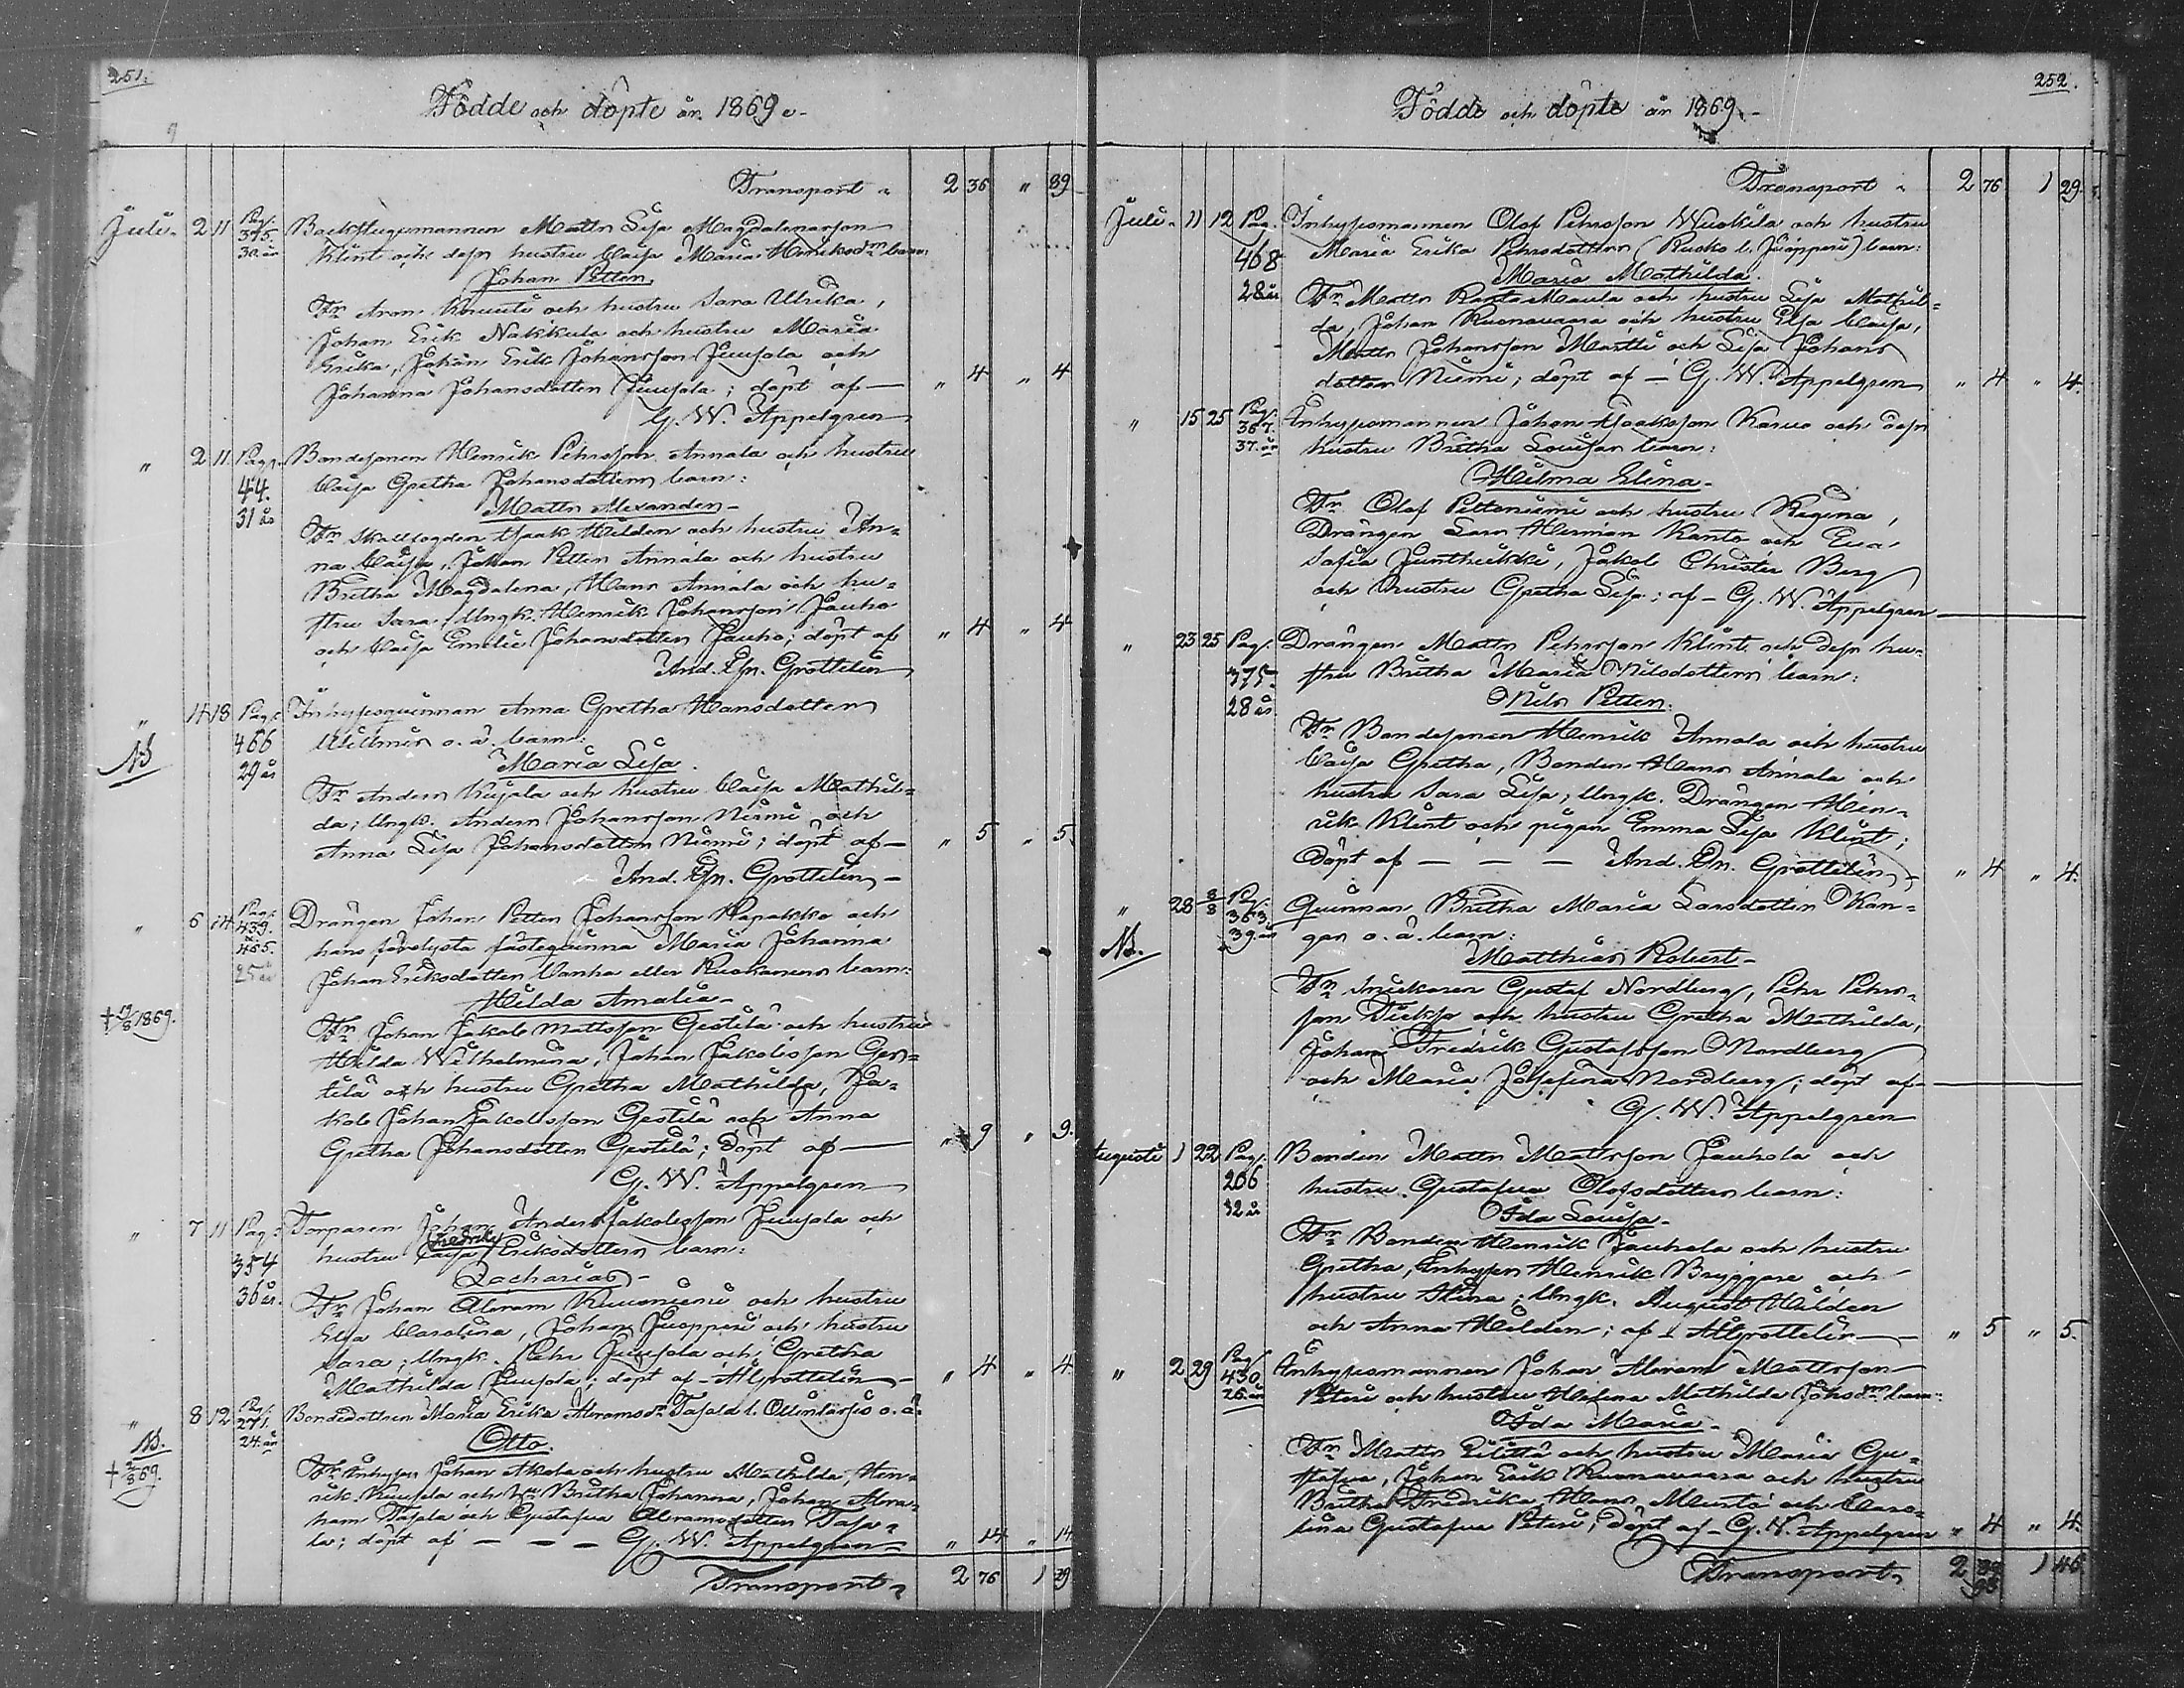 251.
Födde och döpte år 1869.
Transport 2 36 " 89
Juli. 2 11 Pag. 375. 30. år Backstugumannen Matts Lisa Magdalenasson
Klint och desn hustru Caisa Maria Henriksdrs barn
Johan Petter.
Fr. Aron Knuuti och hustru Sara Ulrika,
Johan Erik Nakkula och hustru Maria
Erika, Johan Erik Johansson Juusola och
Johanna Johansdotter Juusola; döpt af — " 4 " 4
G. W. Appelgren
" 2 11. Pag. 44. 31 år Bondesonen Henrik Pehrsson Annala och hustru
Caisa Gretha Johansdotters barn:
Matts Alexander.
Fr. skallfogden Isaak Hilden och hustru An-
na Caisa, Johan Petter Annala och hustru
Britha Magdalena, Hans Annala och hu-
stru Sara; Ungk. Henrik Johansson Jauho
och Caisa Emilie Johansdotter Jauho; döpt af " 4 " 4
And. Joh. Grottelin
" 14 18 Pag. 466 29 år Inhysesquinnan Anna Gretha Hansdotter
NB o. ä. barn:
Maria Lisa.
Fr. Anders Kujala och hustru Caisa Mathil-
da; Ungk. Anders Johansson Niemi och
Anna Lisa Johansdotter Niemi; döpt af — " 5 " 5.
And. Joh. Grottelin
" 6 14 Pag. 439. 465. 25 år Drängen Johan Petter Johansson Rapakko och
hans förelysta fästequinna Maria Johanna
Johan Eriksdotter Vanha eller Ruokanens barn:
Hilda Amalia.
† 1869. Fr. Johan Jakob Mattsson Gestilä och hustru
Hilda Wilhelmina, Johan Jakobsson Ges-
tilä och hustru Gretha Mathilda, Ja-
kob Johan Jakobsson Gestilä och Anna
Gretha Johansdotter Gestilä; döpt af — " 9 " 9.
G. W. Appelgren
" 7 11 Pag. 354 36 år. Torparen Johan Anders Jakobsson Juusola och
hustru Caisa Fredrika Eriksdotters barn:
Zacharias.
Fr. Johan Abram Kuuoniemi och hustru
Elsa Carolina, Johan Juopperi och hustru
Sara; Ungk. Pehr Juusola och Gretha
Mathilda Juusola; döpt af - AGrottelin " 4 " 4.
" 8 12 Pag. 271. 24. år Bondedottren Maria Erika Abramsdr Tasala l. Ollinlassis o. ä.
NB. Otto.
† 69. Fr. Inhyses Johan Akola och hustru Mathilda, Hen-
rik Kuusela och hu Britha Johanna, Johan Abra-
ham Tasala och Gustafva Abramsdotter Tasa-
la; döpt af — — — G. W. Appelgren " 14 " 14
Transport 2 76 1 29
252.
Födde och döpte år 1869.
Transport 2 76 1 29.
Juli. 11 12 Pag. 468 28 år Inhysesmannen Olof Pehrsson Wuokila och hustru
Maria Erika Pehrsdotters (Rusko l. Juopperi) barn:
Maria Mathilda.
Fr. Matts RantaMaula och hustru Lisa Mathil-
da, Johan Ruonavaara och hustru Elsa Caisa,
Matts Johansson Martti och Lisa Johans
dotter Niemi; döpt af — G. W. Appelgren " 4 " 4.
" 15 25 Pag. 367. 37. år Inhysesmannen Johan Isaksson Karvo och desn
hustru Britha Louisas barn:
Hilma Elina.
Fr. Olof Pelloniemi och hustru Regina,
Drängen Lars Herman Kanto och Eva
Safia Juntheikki, Jakob Christer Berg
och hustru Gretha Lisa; af — G. W. Appelgren
" 23 25 Pag. 375. 28 år Drängen Matts Pehrsson Klint och desn hu-
stru Britha Maria Nilsdotters barn:
Nils Petter.
Fr. Bondesonen Henrik Annala och hustru
Caisa Gretha, Bonden Hans Annala och
hustru Sara Lisa; Ungk. Drängen Hen-
rik Klint och pigan Emma Lisa Klint;
Döpt af — — — And. Joh. Grottelin " 4 " 4.
" 28 8/8 Pag. 363. 39. år Quinnan Britha Maria Larsdotter Kan-
NB. gas o. ä. barn:
Matthias Robert.
Fr. Snickaren Gustaf Nordberg, Pehr Pehrs-
son Dicksa och hustru Gretha Mathilda,
Johan Fredrik Gustafsson Nordberg
och Maria Josefina Nordberg; döpt af —
G. W. Appelgren
Augusti 1 22 Pag. 206 32 år Bonden Matts Mattsson Jauhola och
hustru Gustafva Olofsdotters barn:
Ida Louisa.
Fr. Bonden Henrik Jauhola och hustru
Gretha, Inhyses Henrik Bryggare och
hustru Stina; Ungk. August Hilden
och Anna Hilden; af — AGrottelin " 5 " 5.
" 2 29 Pag. 430. 26. år Inhysesmannen Johan Abram Mattsson
Peteri och hustru Helena Mathilda Johsdrs barn:
Ida Maria.
Fr. Matts Eilittä och hustru Maria Gu-
stafva, Johan Erik Ruonavaara och hustru
Britha Fredrika, Hans Mursto och Caro-
lina Gustafva Peteri; döpt af — G. W. Appelgren " 4 " 4.
Transport 2 93 1 46